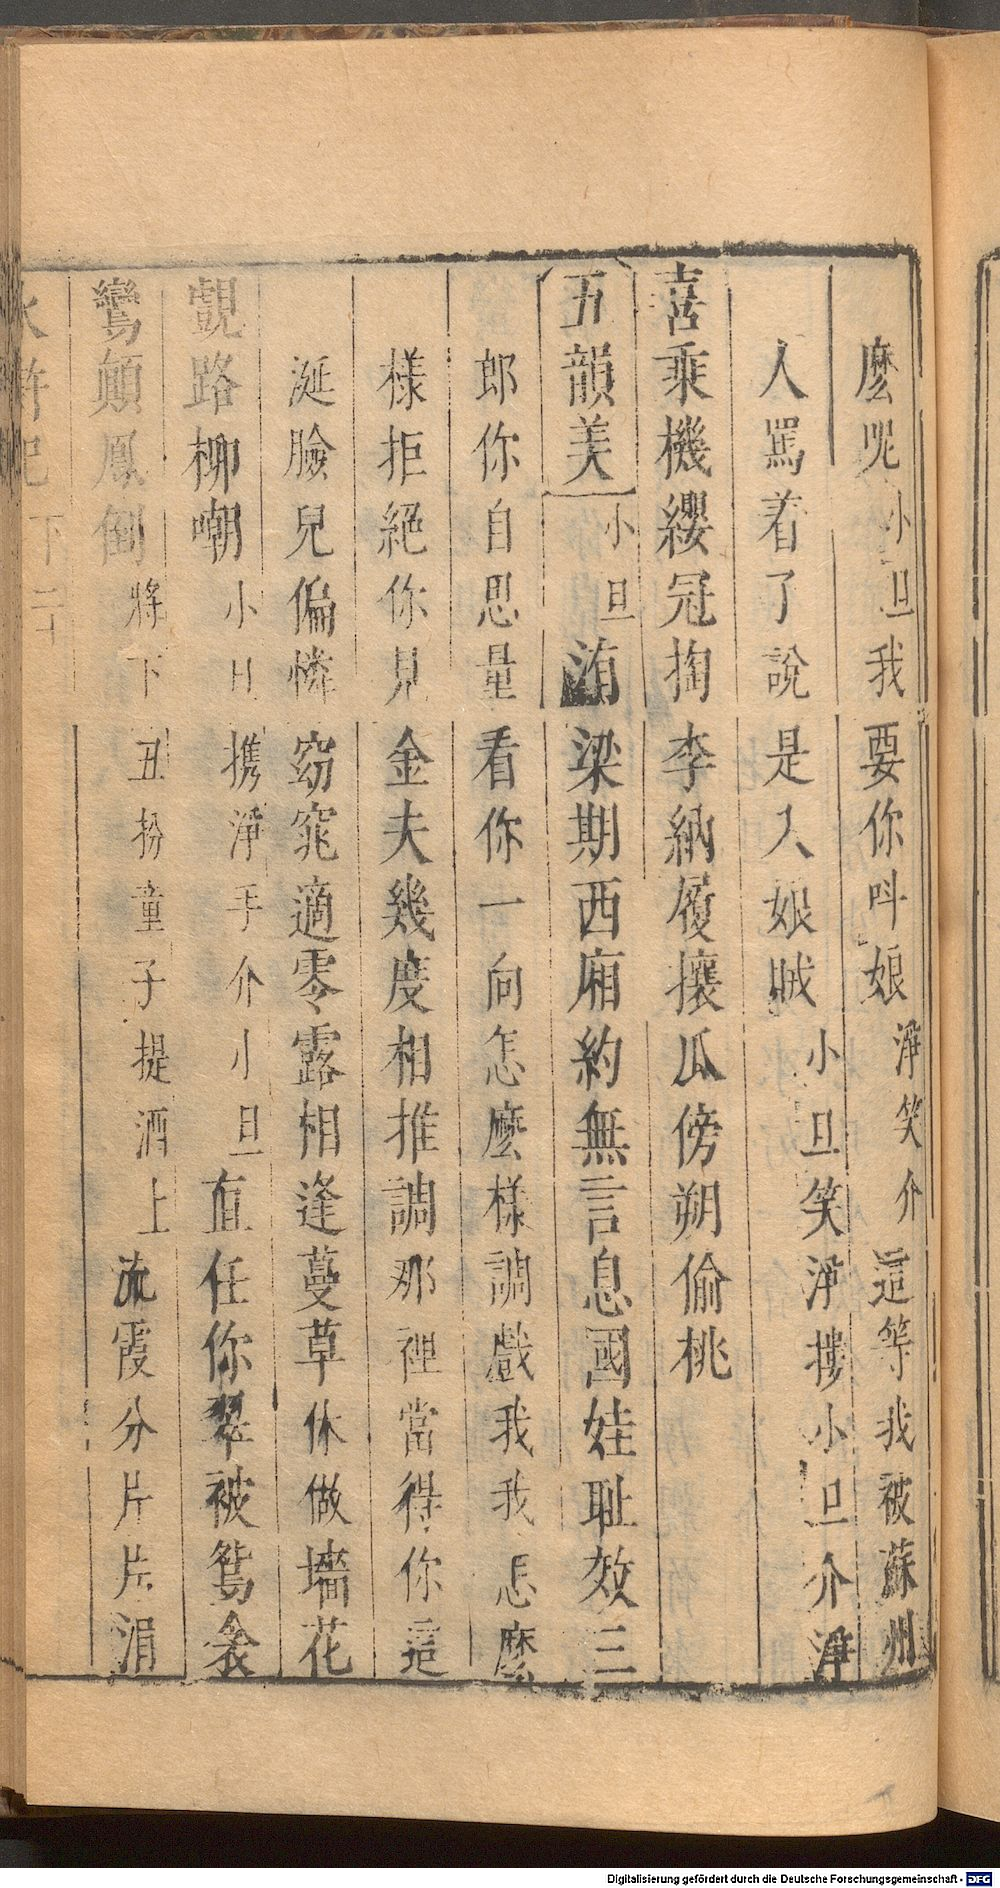 麽呢小旦我要你呌娘淨笑介這等我被蘇州
人罵着了說是入娘賊小旦笑淨摟小旦介淨
喜乘機纓冠掏李納履攘瓜傍朔偷桃
五韻美小旦洧梁期西廂約無言息國娃耻效三
郎你自思量看你一向怎麽樣調戲我我怎麽
樣拒絕你見金夫幾度相推調那裡當得你這
涎臉兒偏憐窈窕適零露相逢蔓草休做墻花
覷路柳嘲小旦携淨手介小旦直任你翠被鴛衾
鸞顛鳳倒將下丑扮童子提酒上流霞分片片涓
水滸記下二十
Digitalisierung gefördert durch die Deutsche Forschungsgemeinschaft - DFG